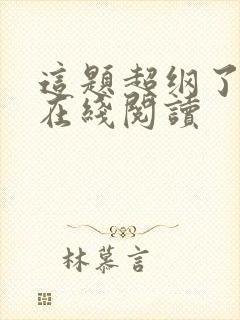 這題超纲了
在綫閱讀
林慕言